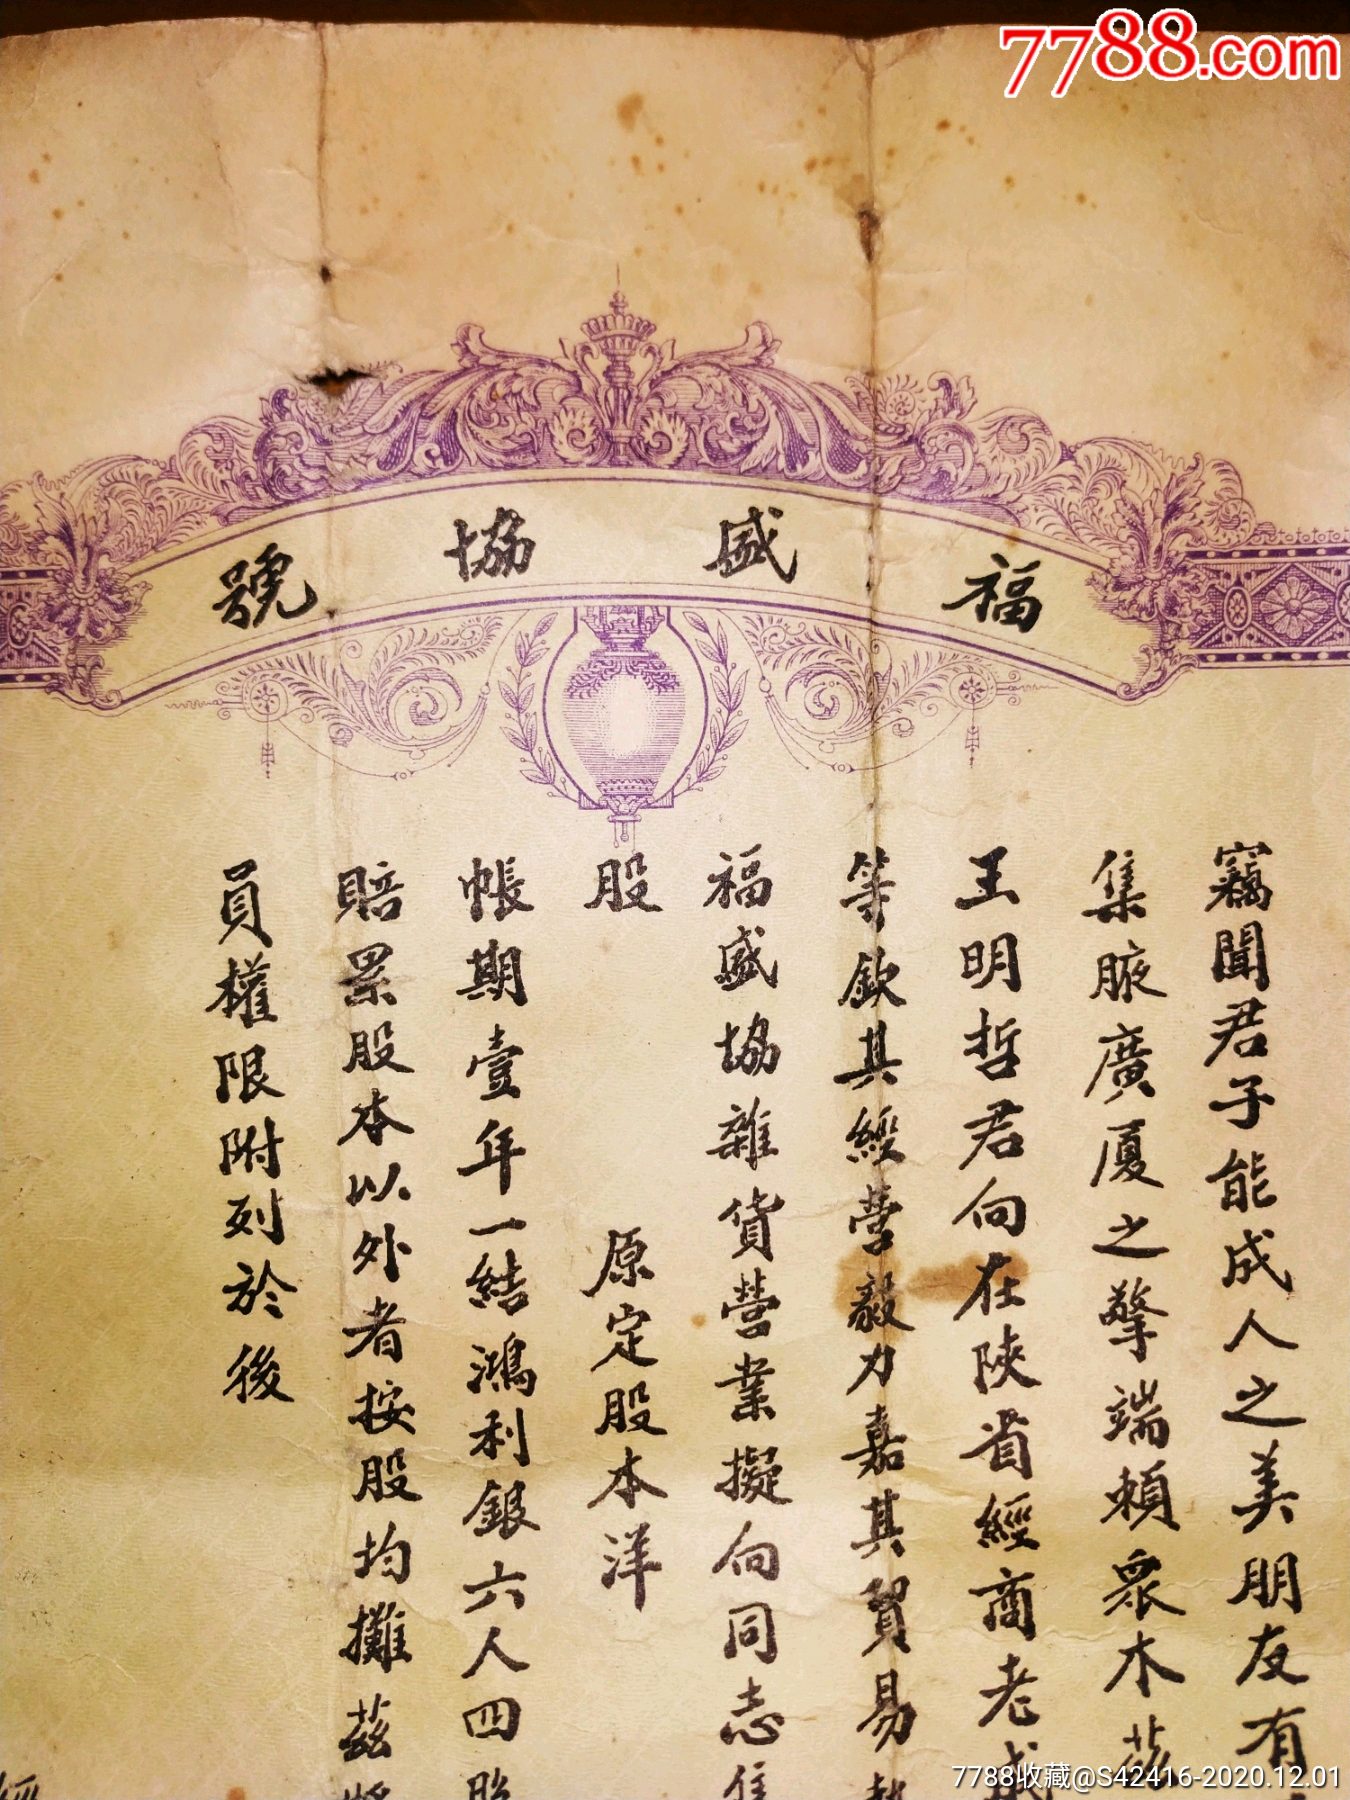 7788.com
福盛協號
竊聞君子能成人之美朋友有
集腋廣厦之擎端賴衆木茲
王明哲君向在陝省經商老成
等欽其經營毅力嘉其貿易
福盛協雜貨營業擬向同志集
股 原定股本洋
帳期壹年一結鴻利銀六人四股
賠累股本以外者按股均攤茲將
員權限附列於後
經
7788收藏@S42416-2020.12.01